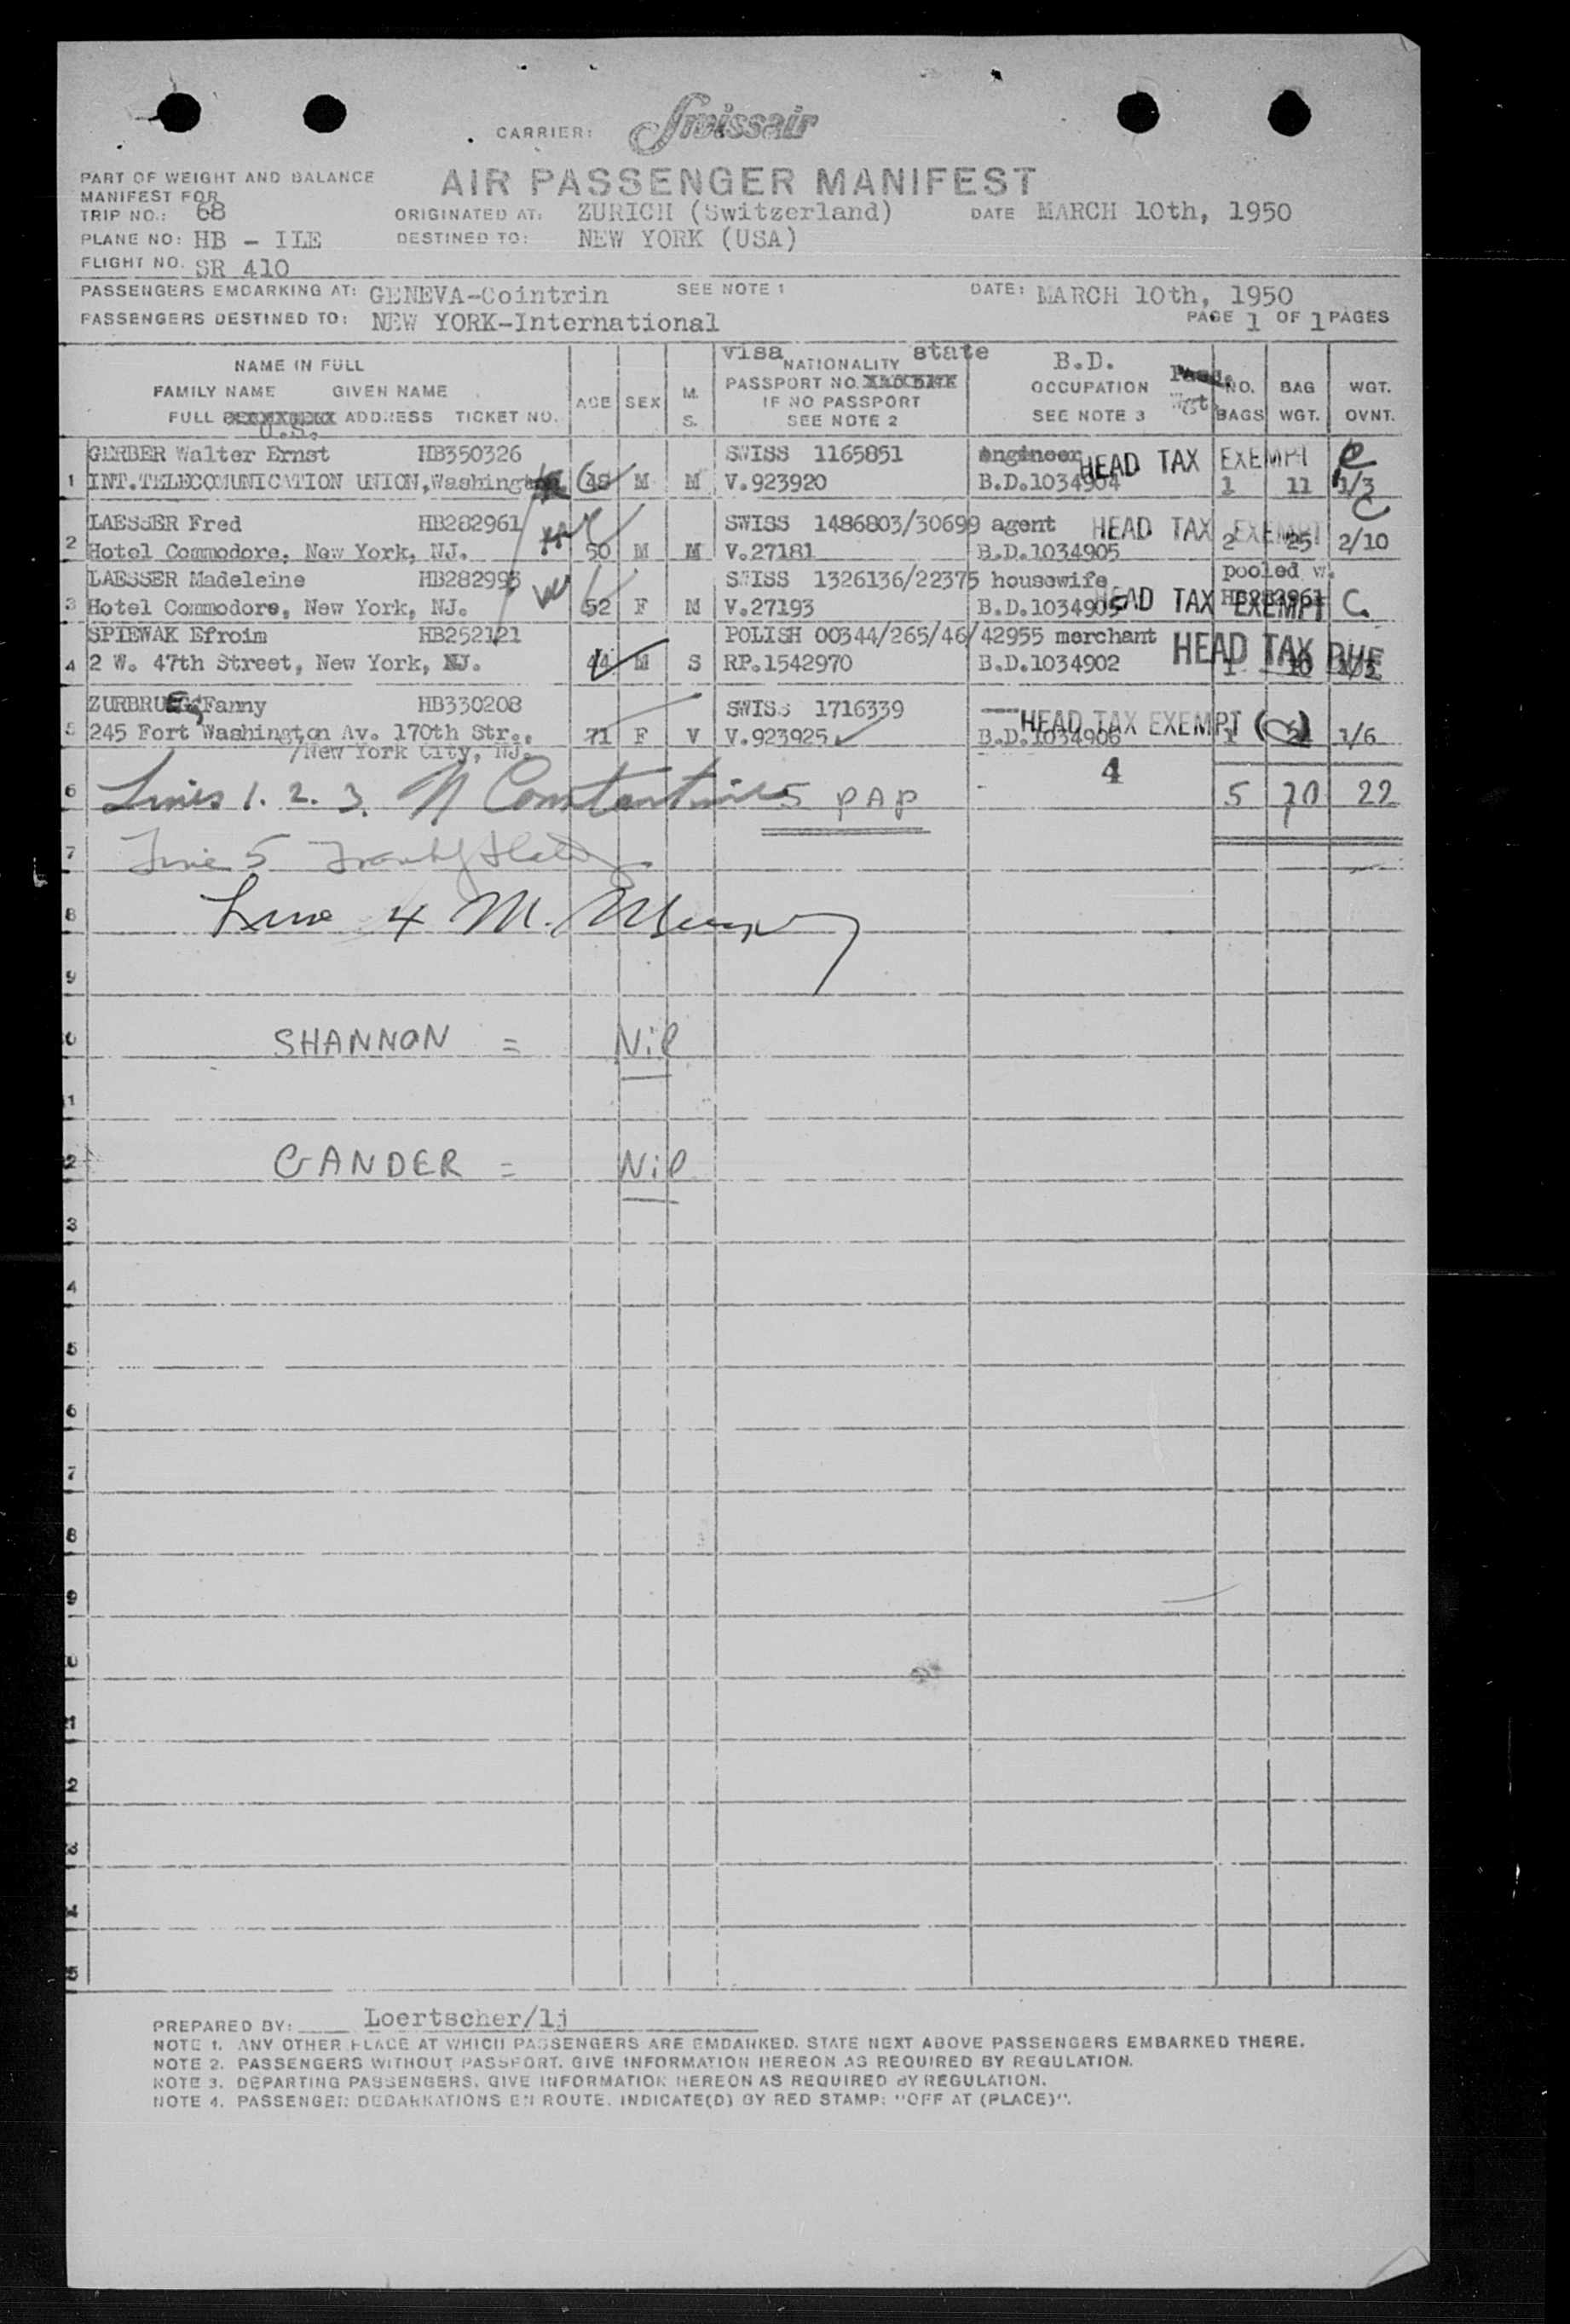 CARRIER: Swissair
AIR PASSENGER MANIFEST
PART OF WEIGHT AND BALANCE
MANIFEST FOR
TRIP NO.: 68 ORIGINATED AT: ZURICH (Switzerland) DATE MARCH 10th, 1950
PLANE NO: HB - ILE DESTINED TO: NEW YORK (USA)
FLIGHT NO. SR 410
PASSENGERS EMBARKING AT: GENEVA-Cointrin SEE NOTE 1 DATE: MARCH 10th, 1950
PASSENGERS DESTINED TO: NEW YORK-International PAGE 1 OF 1 PAGES
visa state B.D.
NAME IN FULL NATIONALITY
FAMILY NAME GIVEN NAME AGE SEX M. PASSPORT NO. OCCUPATION NO. BAG WGT.
IF NO PASSPORT Wgt.
FULL ADDRESS TICKET NO. S. SEE NOTE 2 SEE NOTE 3 BAGS WGT. OVNT.
U.S.
GERBER Walter Ernst HB350326 SWISS 1165851 engineer HEAD TAX EXEMPT
1 INT.TELECOMUNICATION UNION, 48 M M V.923920 B.D.1034904 1 11 1/3
LAESSER Fred HB282961 SWISS 1486803/30699 agent HEAD TAX EXEMPT C
2 Hotel Commodore, New York, NJ. 50 M M V.27181 B.D.1034905 2 25 2/10
LAESSER Madeleine HB282993 SWISS 1326136/22375 housewife pooled w.
3 Hotel Commodore, New York, NJ. 52 F M V.27193 B.D.1034905 HEAD TAX EXEMPT HB282961 C.
SPIEWAK Efroim HB252121 POLISH 00344/265/46/42955 merchant HEAD TAX DUE
4 2 W. 47th Street, New York, NJ. 44 M S RP.1542970 B.D.1034902 1 10
ZURBRUEGG Fanny HB330208 SWISS 1716339 HEAD TAX EXEMPT
5 245 Fort Washington Av. 170th Str., 71 F V V.923925 B.D.1034906 1 24 1/6
/New York City, NJ.
4
6 Lines 1. 2. 3. N Constantinides PAP 5 70 22
7 Line 5
8 Line 4 M.
9
SHANNON = Nil
1
2 GANDER = Nil
3
4
5
6
7
8
9
0
1
2
3
4
5
PREPARED BY: Loertscher/lj
NOTE 1. ANY OTHER PLACE AT WHICH PASSENGERS ARE EMBARKED. STATE NEXT ABOVE PASSENGERS EMBARKED THERE.
NOTE 2. PASSENGERS WITHOUT PASSPORT. GIVE INFORMATION HEREON AS REQUIRED BY REGULATION.
NOTE 3. DEPARTING PASSENGERS. GIVE INFORMATION HEREON AS REQUIRED BY REGULATION.
NOTE 4. PASSENGER DEBARKATIONS EN ROUTE. INDICATE(D) BY RED STAMP: "OFF AT (PLACE)".